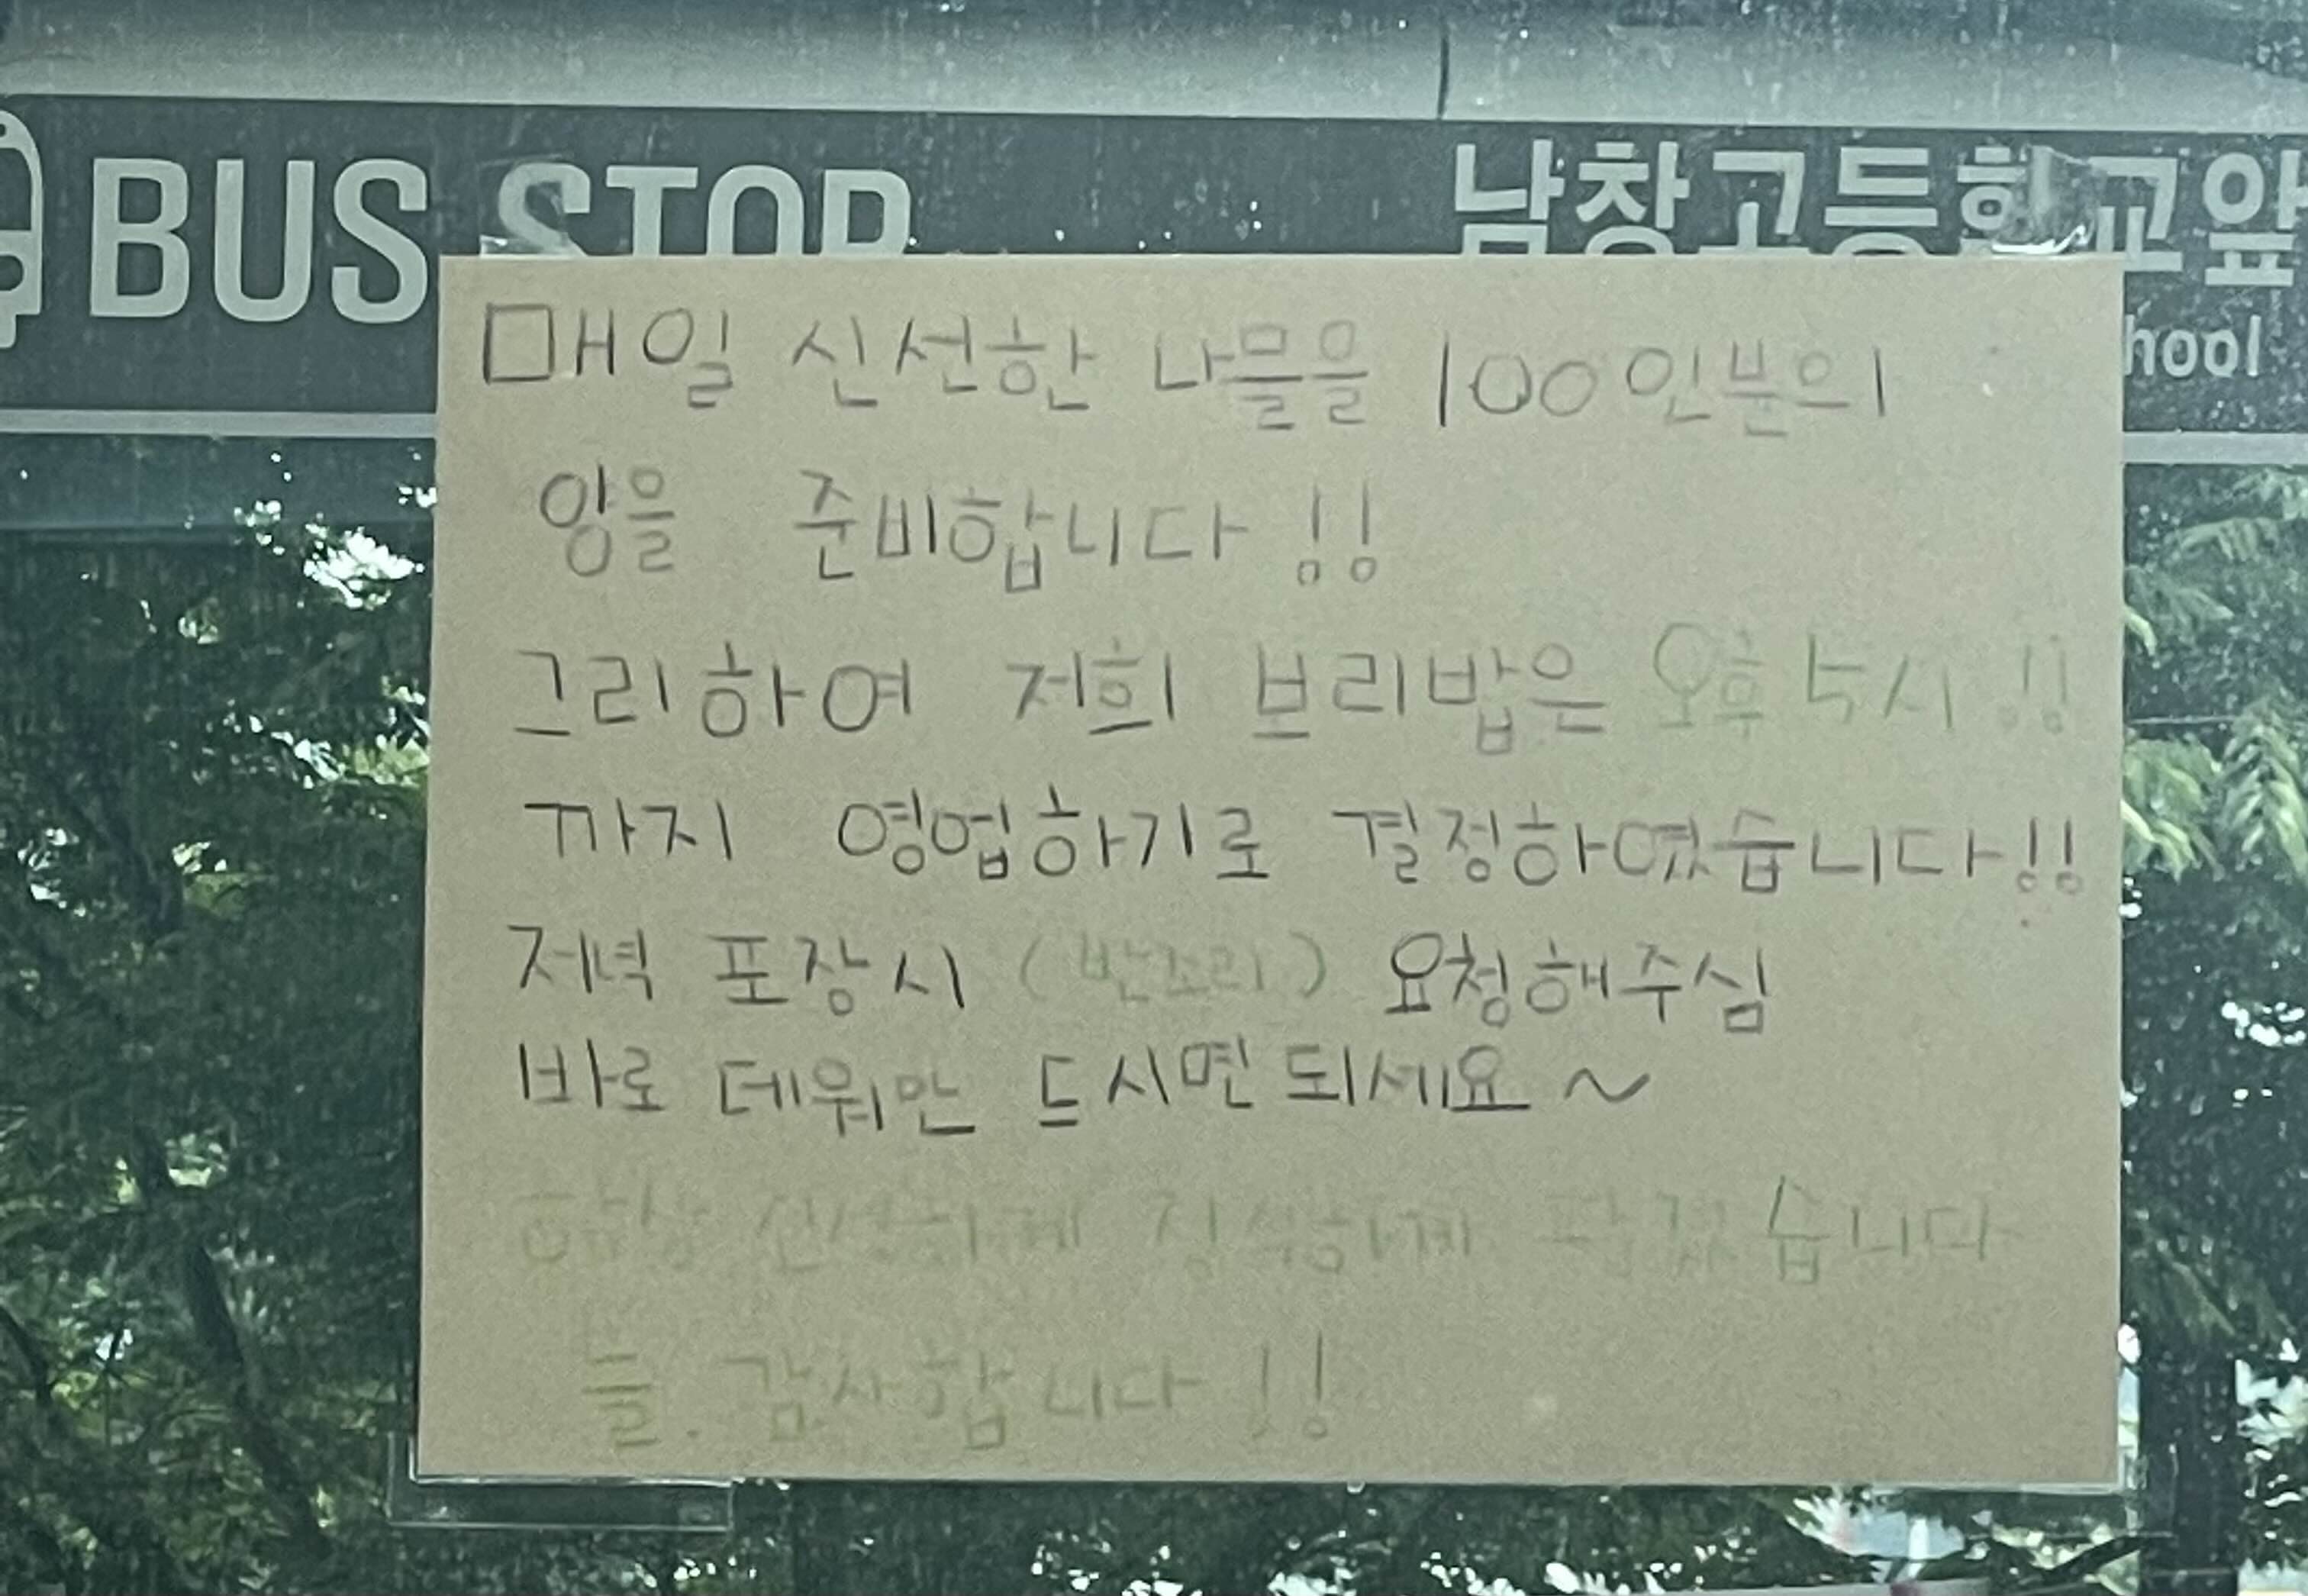 BUS STOP 남창고등학교앞
hool
매일 신선한 나믈을 100인분의
양을 준비합니다 !!
그리하여 저희 보리밥은 오후 5시 !!
까지 영업하기로 결정하였습니다!!
저녁 포장시 (반조리) 요청해주심
바로 데워만 드시면 되세요~
항상 신선하게 정직하게 팔겠습니다
늘. 감사합니다 !!